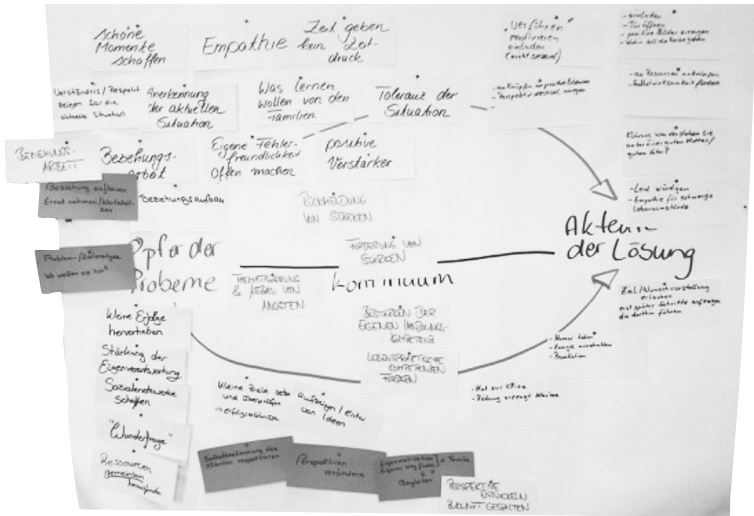 schöne
Momente
schaffen
Empathie
Zeit geben
kein Zeit-
druck
"Verführen"
motivieren
einladen
- einladen
- Tür öffnen
- positive Bilder erzeugen
Verständnis / Respekt
zeigen für die
aktuelle Situation
Anerkennung
der aktuellen
Situation
Was lernen
wollen von den
Familien
Toleranz der
Situation
- Perspektivwechsel anregen
- an Ressourcen anknüpfen
- Selbstwirksamkeit fördern
BEZIEHUNGS-
ARBEIT
Beziehungs-
arbeit
Eigene Fehler-
freundlichkeit
offen machen
positive
Verstärker
Klärung was verstehen Sie
unter einer guten Mutter/
guten Vater?
Beziehung aufbauen
Ernst nehmen / Wertschät-
zen
Beziehungsaufbau
RÜCKMELDUNG
VON STÄRKEN
- Leid würdigen
- Empathie für schwierige
Lebensumstände
Problem-/Zielanalyse
Wo wollen sie hin?
Opfer der
Probleme
FÖRDERUNG VON
STÄRKEN
Akteur
der Lösung
THEMATISIERUNG
& ABBAU VON
ÄNGSTEN
Kontinuum
Ziel / Wunschvorstellung
erlauben
erst später Schritte aufzeigen
die dorthin führen
Kleine Erfolge
hervorheben
BESTÄRKEN DER
EIGENEN HANDLUNGS-
KOMPETENZ
- Humor haben
- Energie ausstrahlen
- Provokation
Stärkung der
Eigenverantwortung
LEBENSPRAKTISCHE
KOMPETENZEN
FÖRDERN
Sozialnetzwerke
schaffen
Kleine Ziele setzen
und überprüfen
Aufzeigen / Entw.
von Ideen
- Mut zur Krise
- Reibung erzeugt Wärme
"Wunderfrage"
Ressourcen
gemeinsam
herausfinden
Selbstbestimmung des
Klienten respektieren
Perspektiven
verändern
Eigenmotivation
Eigenen Weg finden
d. Familie
Begleiten
PERSPEKTIVE
ENTWICKELN
ZUKUNFT GESTALTEN